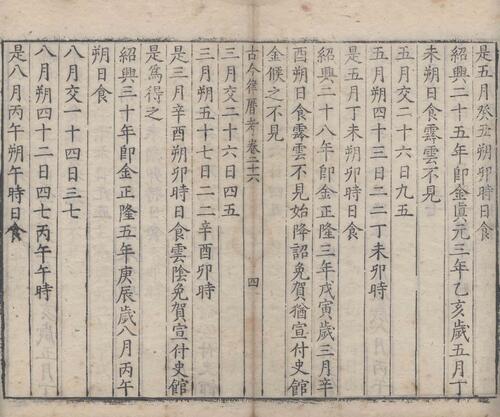 是五月癸丑朔卯時日食
紹興二十五年卽金貞元三年乙亥歲五月丁
未朔日食霧雲不見
五月交二十六日九五
五月朔四十三日二二丁未卯時
是五月丁未朔卯時日食
紹興二十八年卽金正隆三年戊寅歲三月辛
酉朔日食霧雲不見始降詔免賀猶宣付史館
金候之不見
古今律曆考卷二十六
四
三月交二十六日四五
三月朔五十七日二二辛酉卯時
是三月辛酉朔卯時日食雲陰免賀宣付史館
是爲得之
紹興三十年卽金正隆五年庚辰歲八月丙午
朔日食
八月交一十四日三七
八月朔四十二日四七丙午午時
是八月丙午朔午時日食